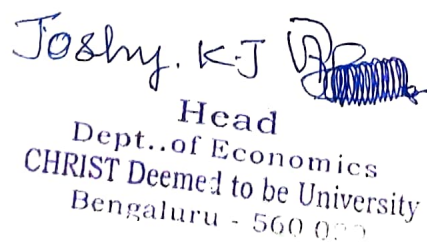 Joshy. K.J
Head
Dept..of Economics
CHRIST Deemed to be University
Bengaluru - 560